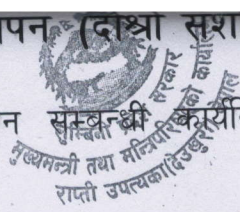 पन (दोश्रो सश
न सम्बन्धी कार्यवि
सरकार
मुख्यमन्त्री तथा मन्त्रिपरिषद्को कार्या
राप्ती उपत्यका(देउखुरी)